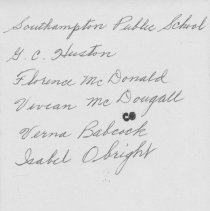 Southampton Public School
G. C. Huston
Florence McDonald
Vivian McDougall
Verna Babcock
Isabel Obright